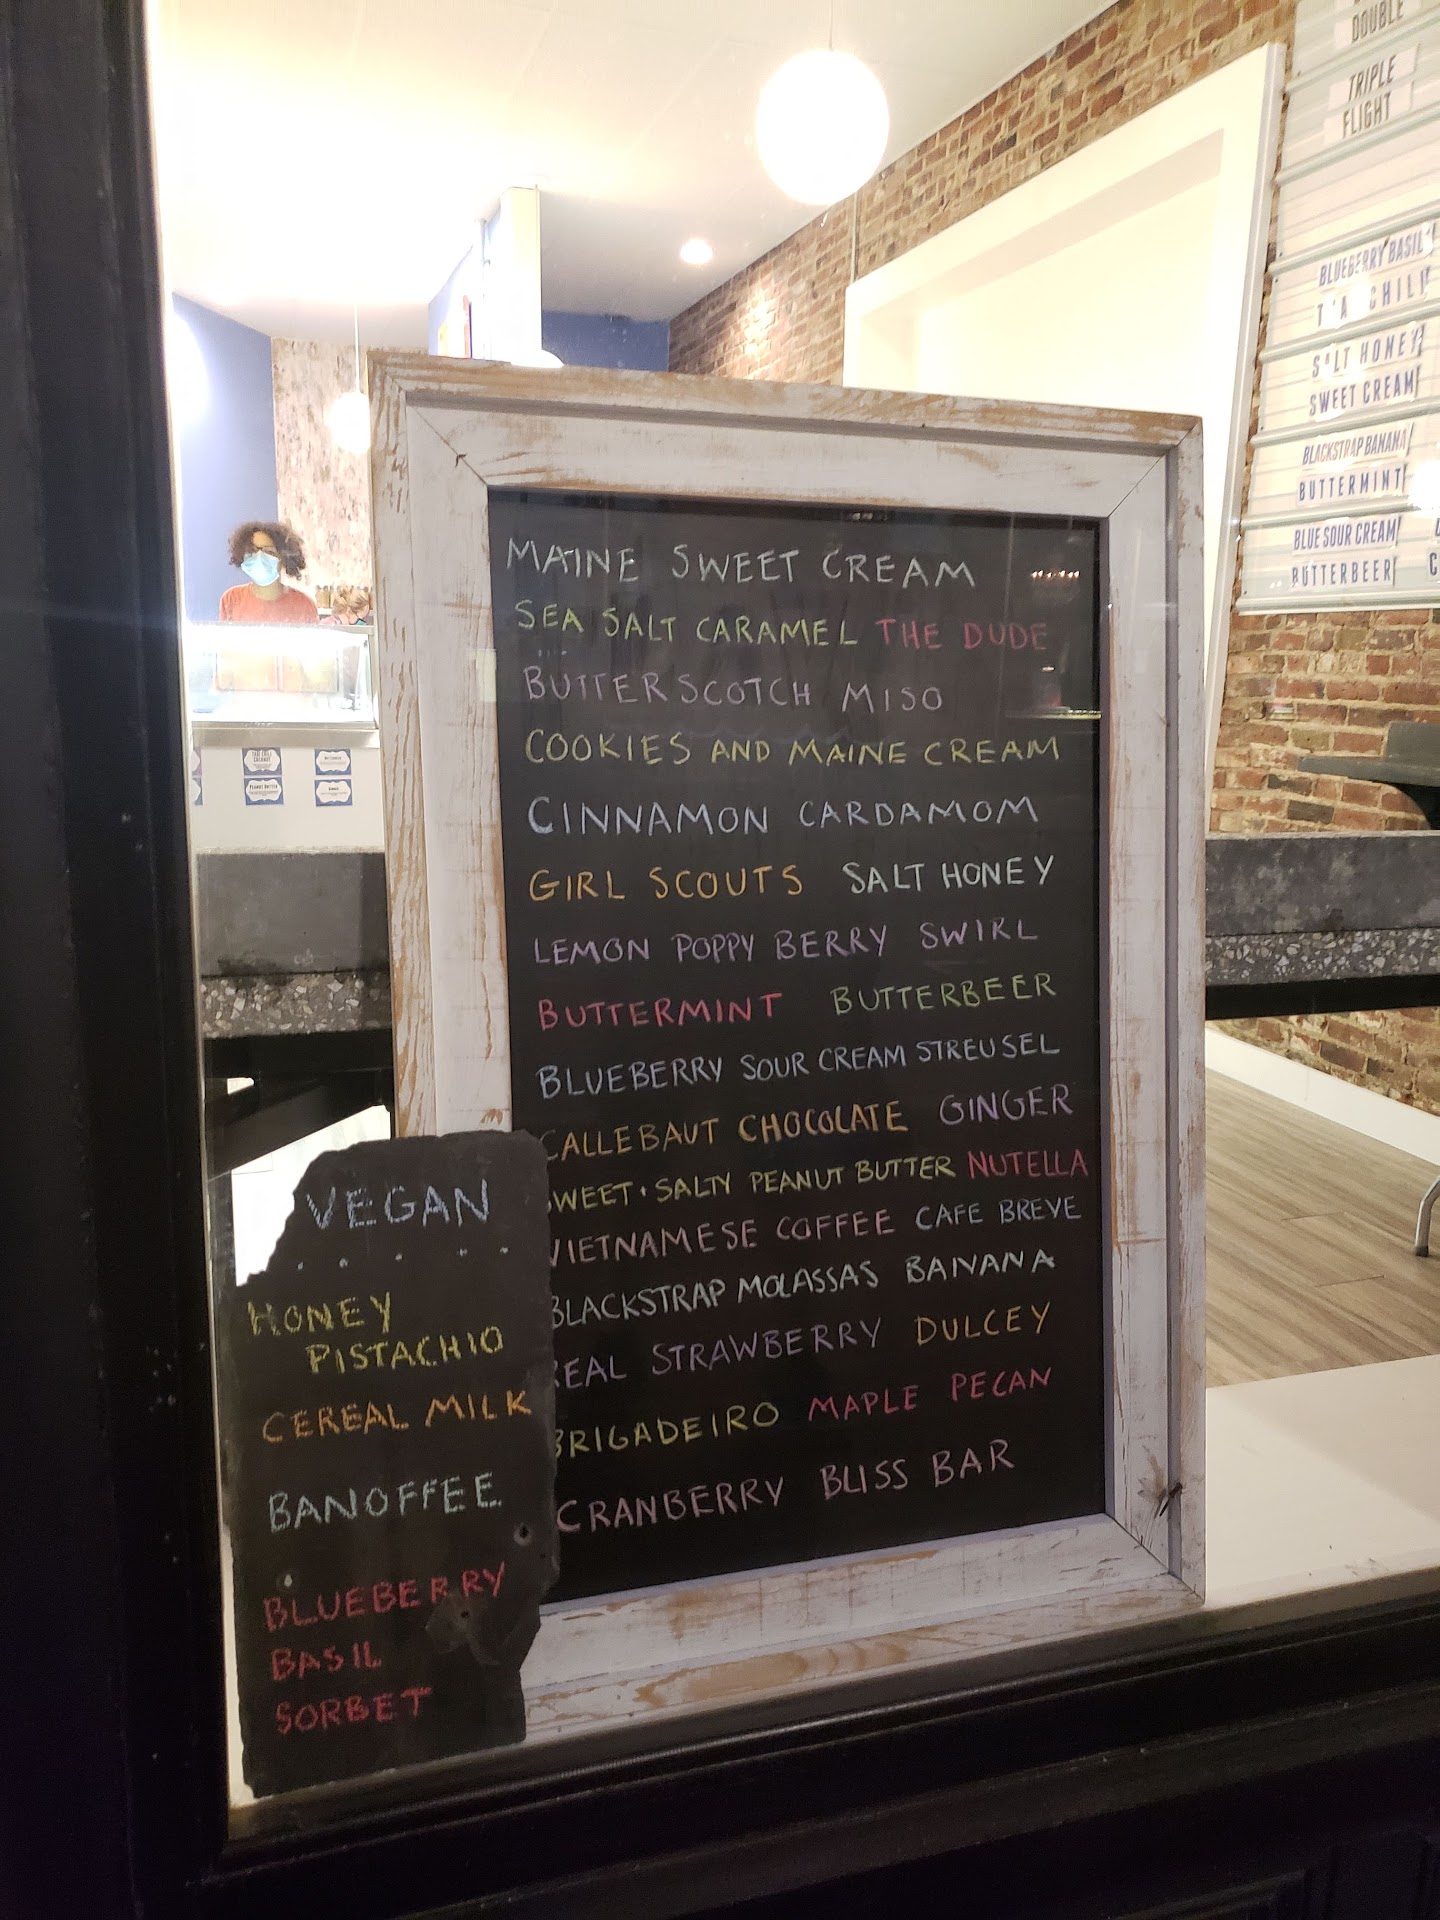 DOUBLE
TRIPLE
FLIGHT
BLUEBERRY BASIL
T A CHILI
S LT HONEY
SWEET CREAM
BLACKSTRAP BANANA
BUTTERMINT
BLUE SOUR CREAM
BUTTERBEER
MAINE SWEET CREAM
SEA SALT CARAMEL THE DUDE
BUTTERSCOTCH MISO
COOKIES AND MAINE CREAM
CINNAMON CARDAMOM
GIRL SCOUTS SALT HONEY
LEMON POPPY BERRY SWIRL
BUTTERMINT BUTTERBEER
BLUEBERRY SOUR CREAM STREUSEL
CALLEBAUT CHOCOLATE GINGER
SWEET · SALTY PEANUT BUTTER NUTELLA
VIETNAMESE COFFEE CAFE BREVE
BLACKSTRAP MOLASSAS BANANA
REAL STRAWBERRY DULCEY
BRIGADEIRO MAPLE PECAN
CRANBERRY BLISS BAR
VEGAN
HONEY
PISTACHIO
CEREAL MILK
BANOFFEE
BLUEBERRY
BASIL
SORBET
PEANUT BUTTER